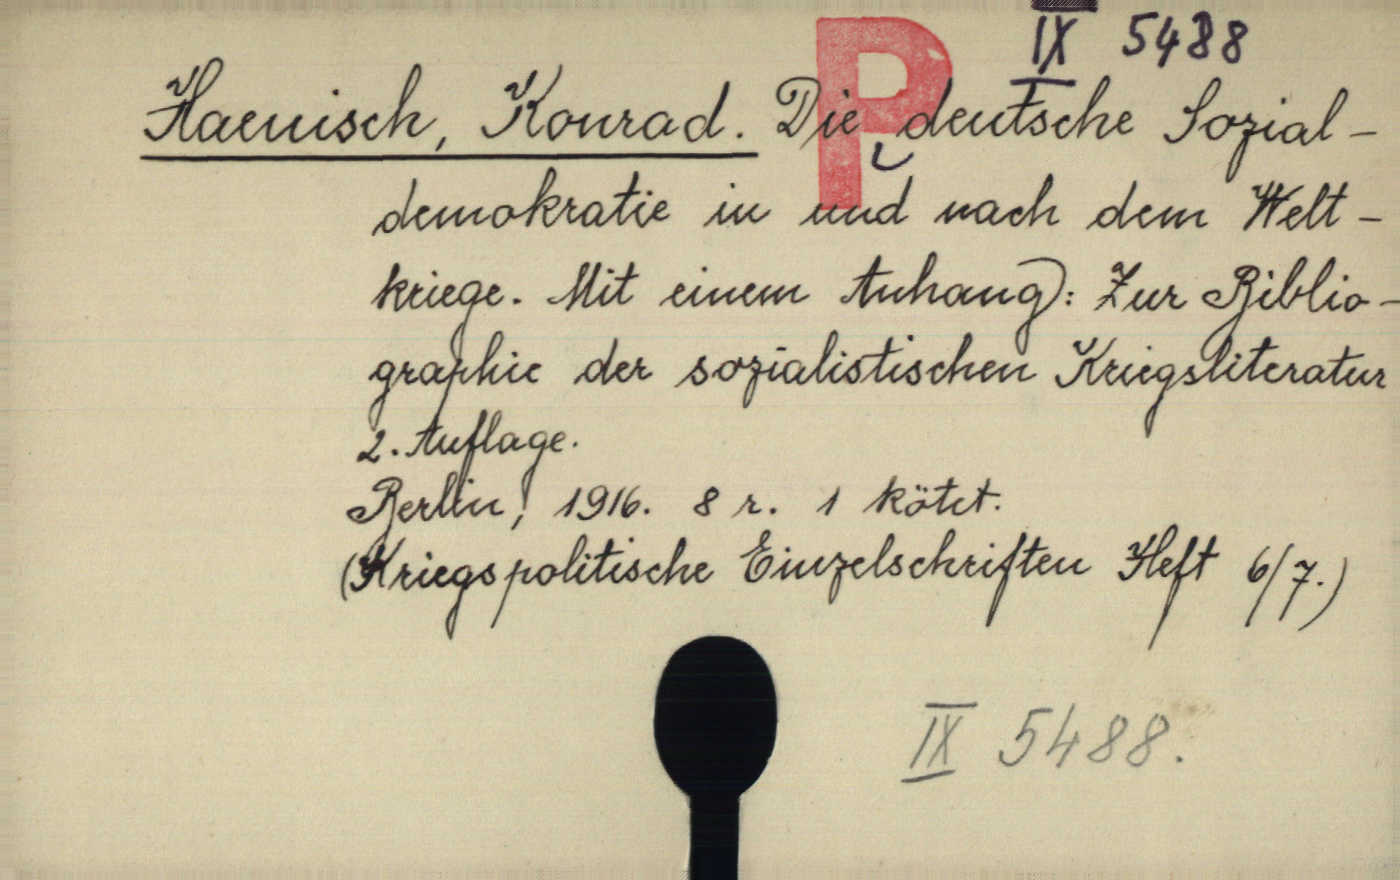 IX 5488
P
Haenisch, Konrad. Die deutsche Sozial-
demokratie in und nach dem Welt-
kriege. Mit einem Anhang): Zur Biblio-
graphie der sozialistischen Kriegsliteratur
2. Auflage.
Berlin, 1916. 8 r. 1 kötet.
(Kriegspolitische Einzelschriften Heft 6/7.)
IX 5488.